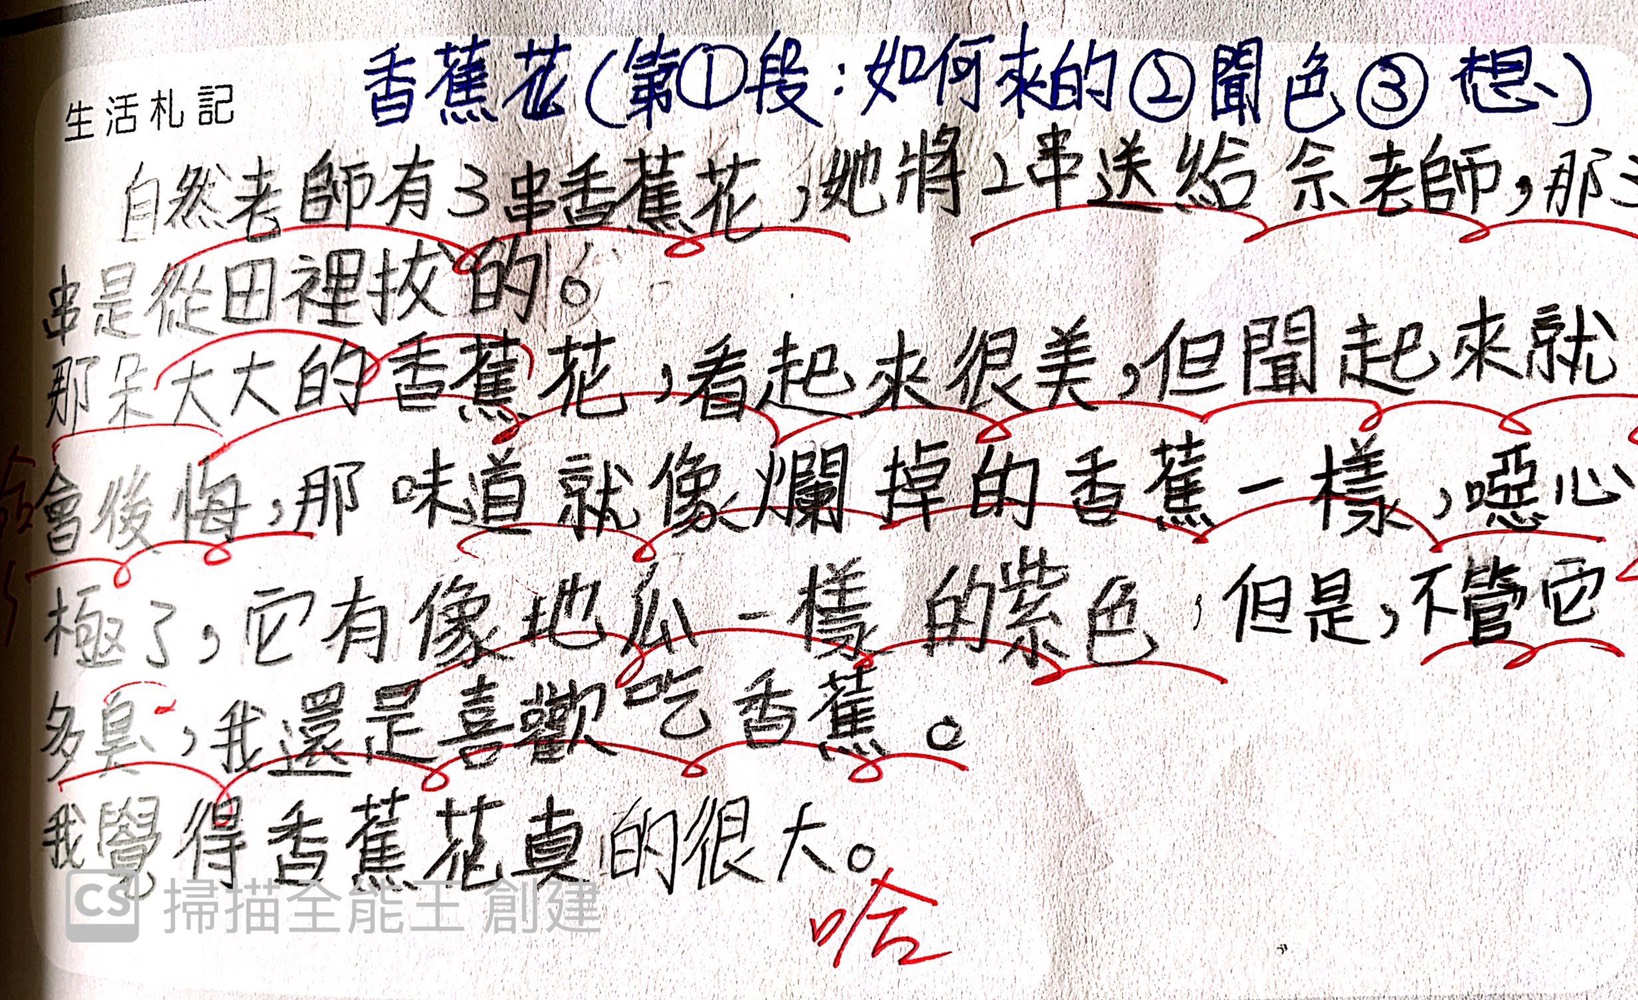 生活札記
香蕉花(第①段:如何來的②聞色③想、)
自然老師有3串香蕉花,她將2串送給佘老師,那
串是從田裡拔的。
那朵大大的香蕉花,看起來很美,但聞起來就
會後悔,那味道就像爛掉的香蕉一樣,噁心
極了,它有像地瓜一樣的紫色,但是,不管它
多臭,我還是喜歡吃香蕉。
我覺得香蕉花真的很大。
哈
CS 掃描全能王 創建